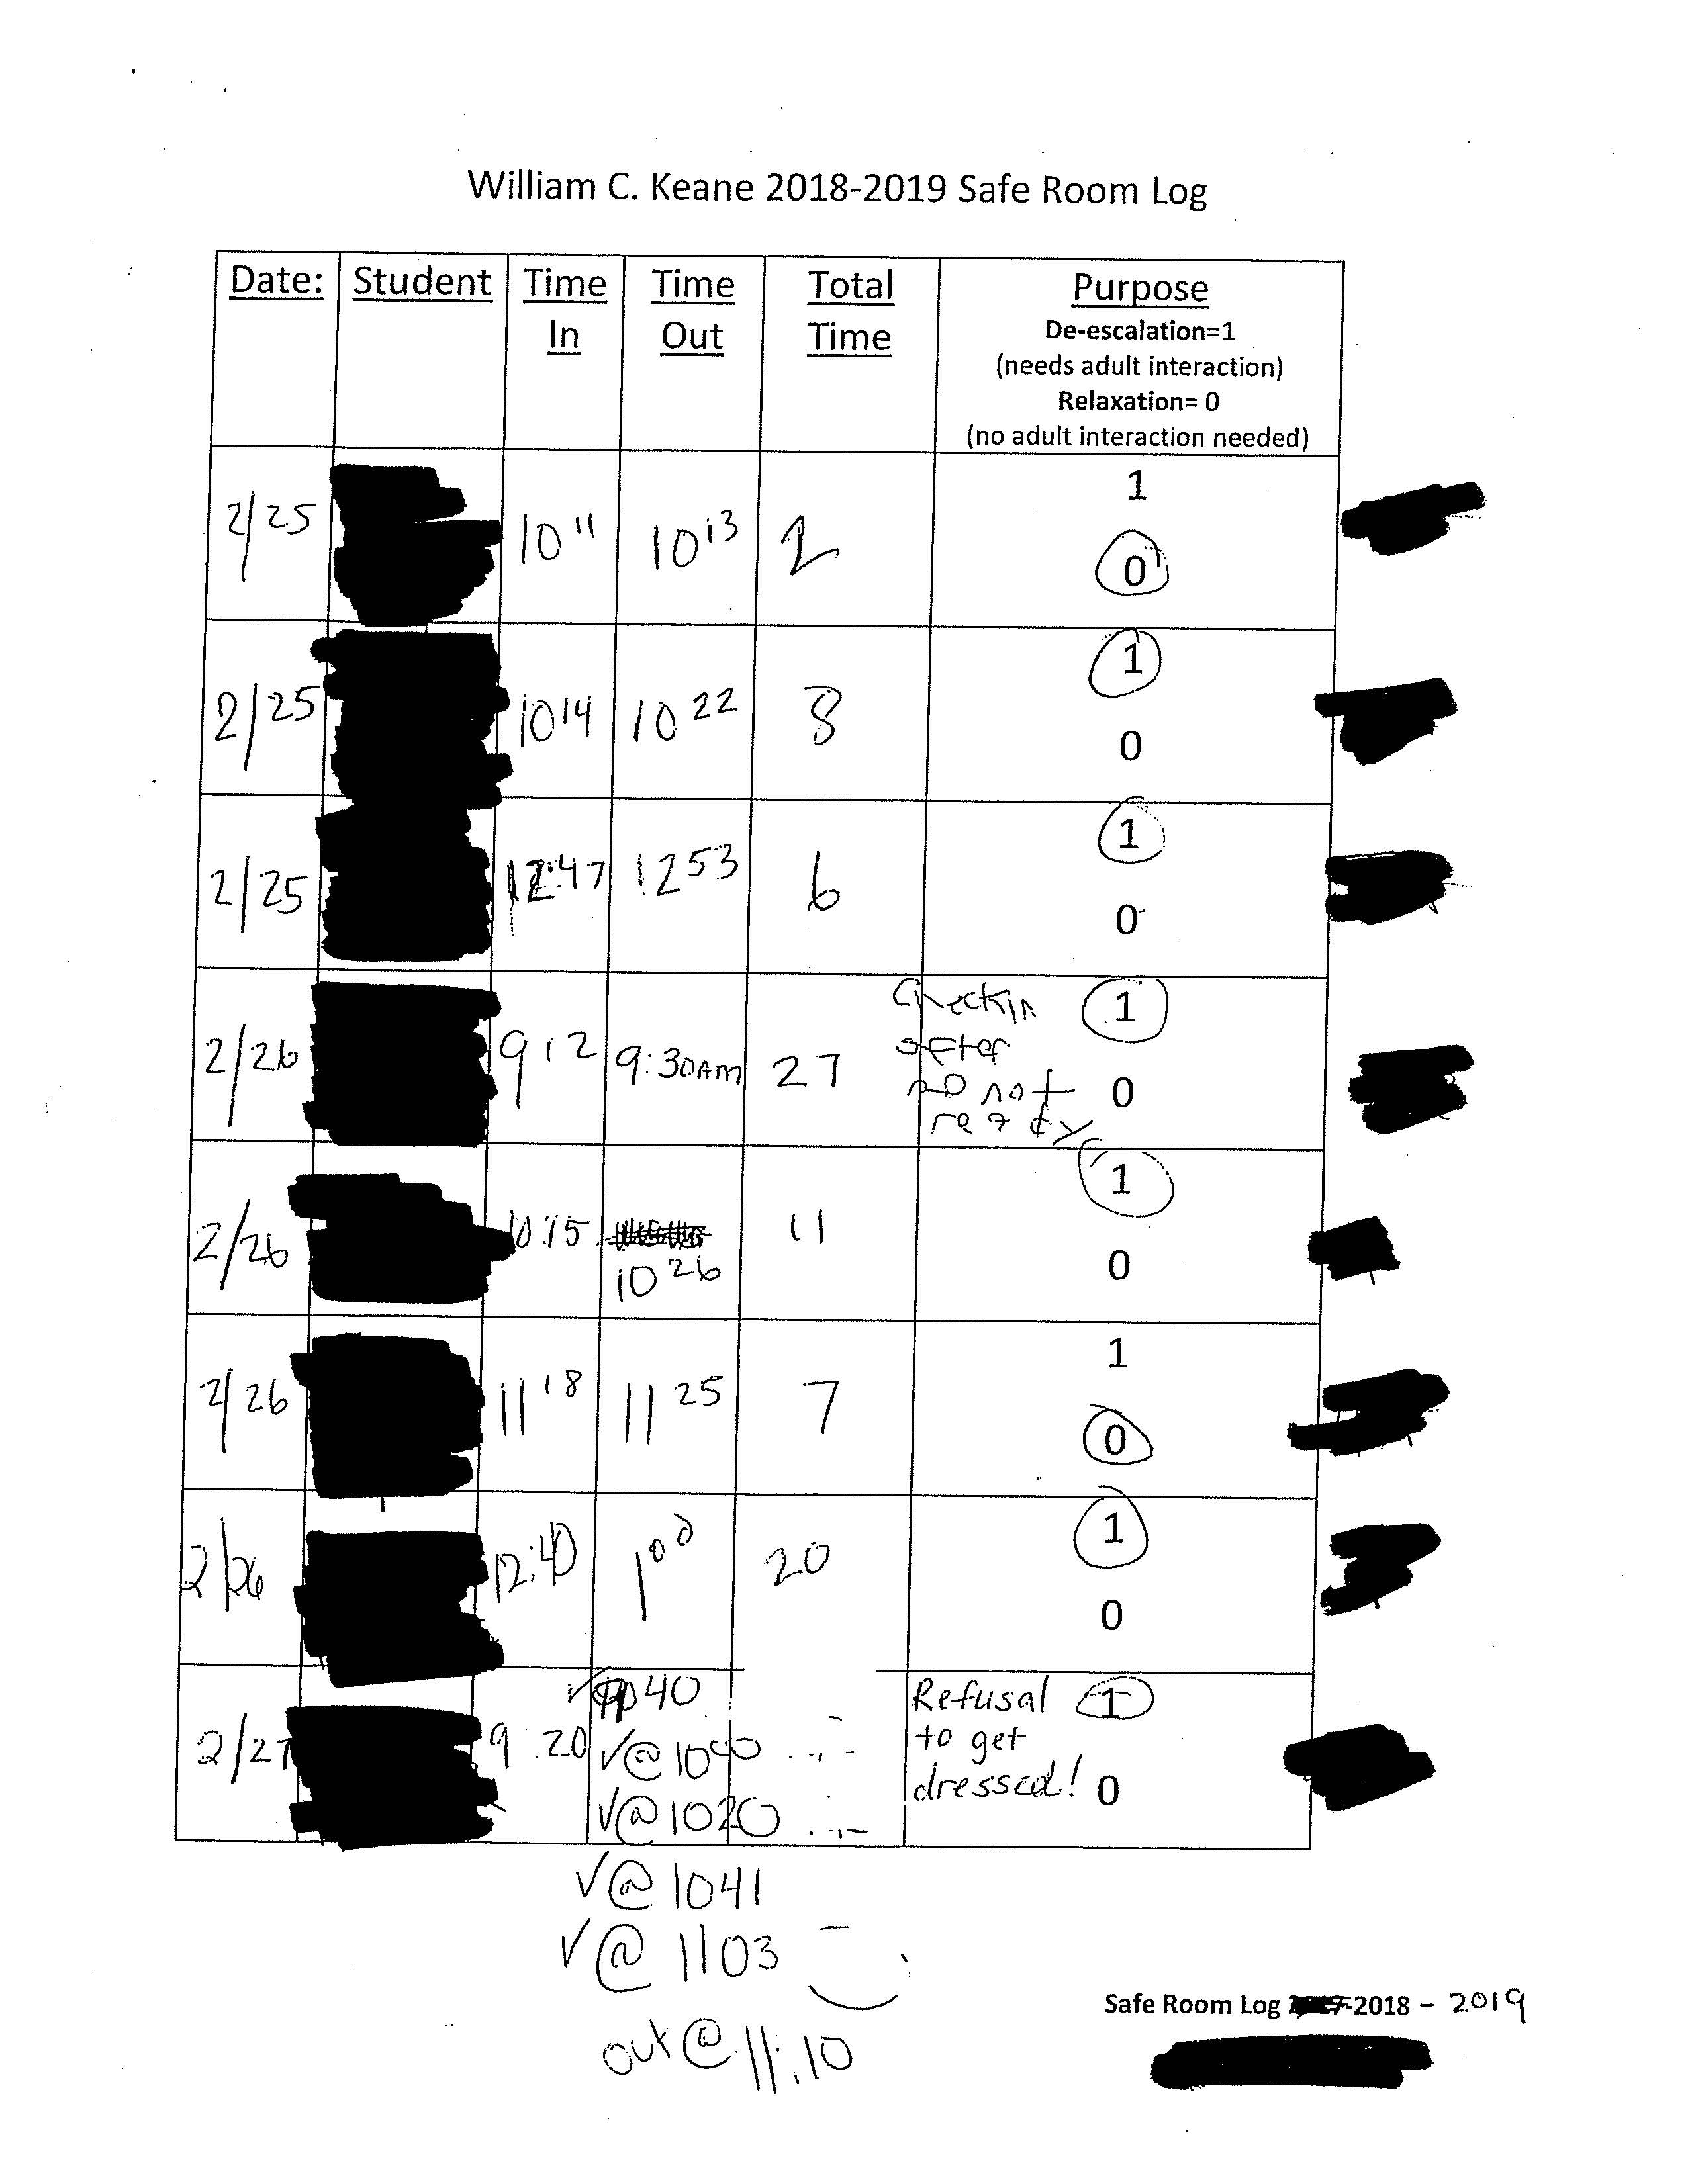 William C. Keane 2018-2019 Safe Room Log
Date: Student Time In Time Out Total Time Purpose
De-escalation=1
(needs adult interaction)
Relaxation= 0
(no adult interaction needed)
2/25 10 11 10 13 2 1 0
2/25 10 14 10 22 8 1 0
2/25 12:47 12 53 6 1 0
2/26 9 12 9:30AM 27 Checkin after 20 not ready 1 0
2/26 10:15 10 26 11 1 0
2/26 11 18 11 25 7 1 0
2/26 12:40 1 00 20 1 0
2/27 9 20 ✓ @ 40 Refusal to get dressed! 1 0
✓@ 1000
✓@ 1020
✓@ 1041
✓@ 1103
out @ 11:10
Safe Room Log 2018 - 2019